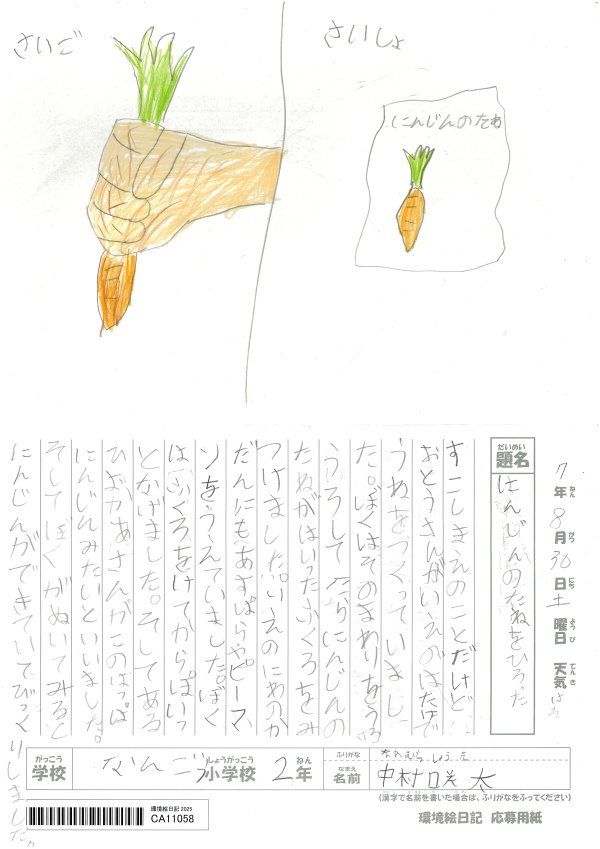 さいしょ
さいご
にんじんのたね
7年8月30日土曜日 天気 はれ
ねん がつ にち ようび てんき
だいめい
題名 にんじんのたねをひろった
すこしまえのことだけど
おとうさんがいえのはたけで
うねをつくっていまし
た。ぼくはそのまわりをうろ
うろして たらにんじんの
たねがはいったふくろをみ
つけました。いえのにわのか
だんにもあすぱらやピーマ
ンをうえていました。ぼく
はふくろをけてからぽいっ
とかげました。そしてある
ひおかあさんがこのはっぱ
にんじんみたいといいました。
そしてぼくがぬいてみると
にんじんができていてびっくりしました。
がっこう しょうがっこう ねん
学校 なんごう小学校 2年
ふりがな なかむら しょうた
なまえ
名前 中村 咲太
(漢字で名前を書いた場合は、ふりがなをふってください)
環境絵日記 2025
CA11058
環境絵日記 応募用紙